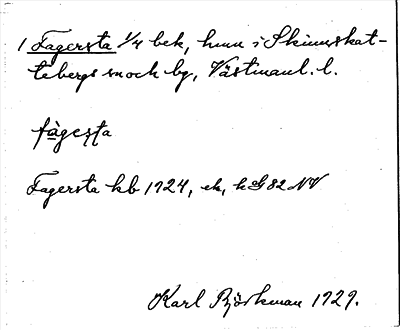 1 Fagersta 1/4 bek, hmn i Skinnskat-
tebergs sn och bg, Västmanl. l.
fàgeṣṭa
Fagersta kb 1924, ek, k G 82 NV
Karl Björkman 1929.